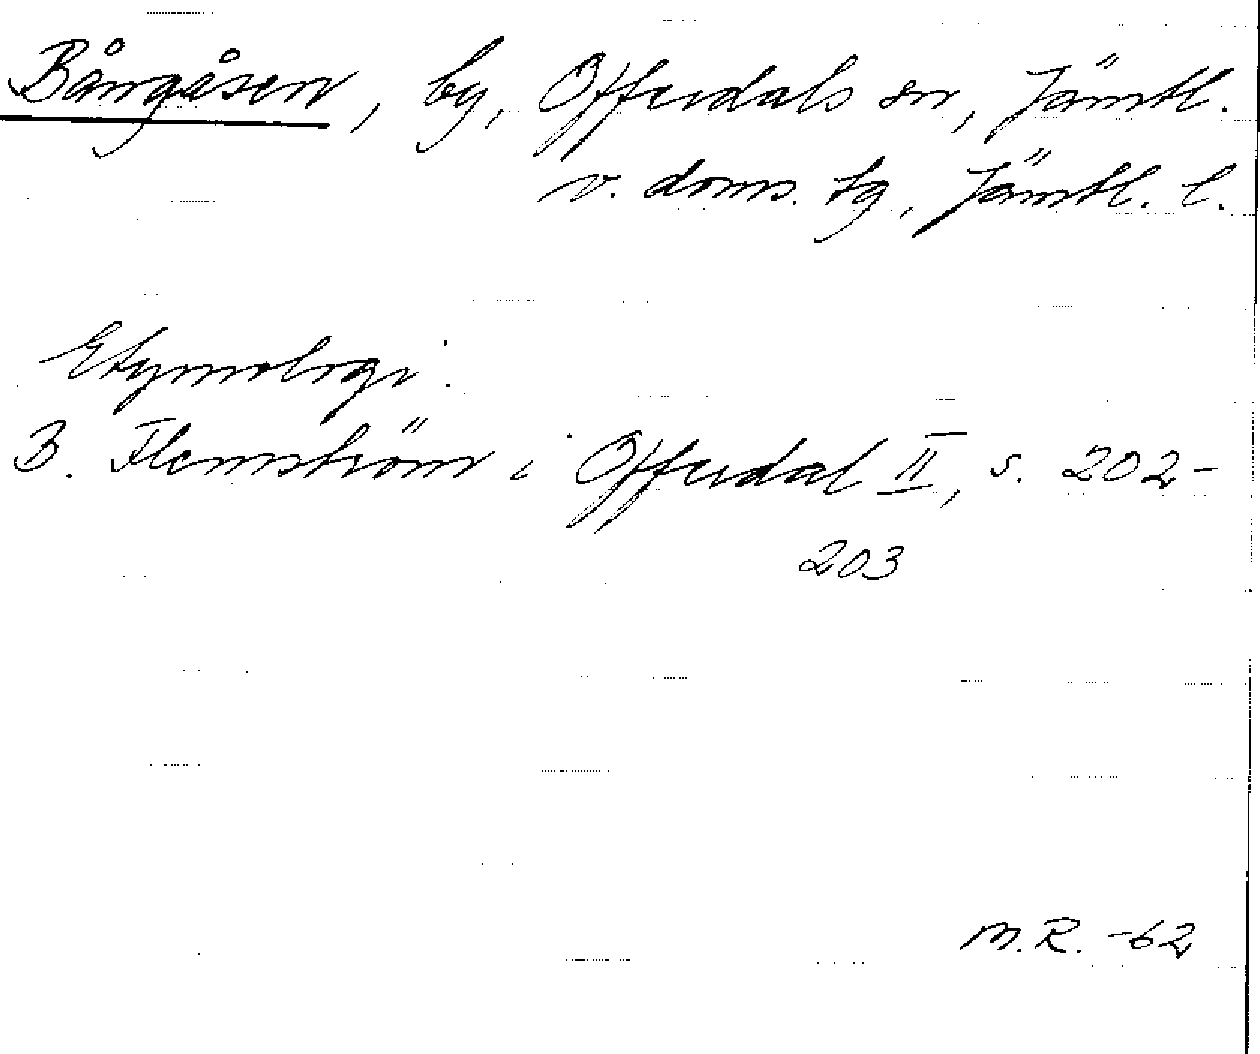 Bångåsen, by, Offerdals sn, Jämtl.
v. doms. tg, Jämtl. l.
Etymologi:
B. Flemström i Offerdal II, s. 202-
203
M.R. -62